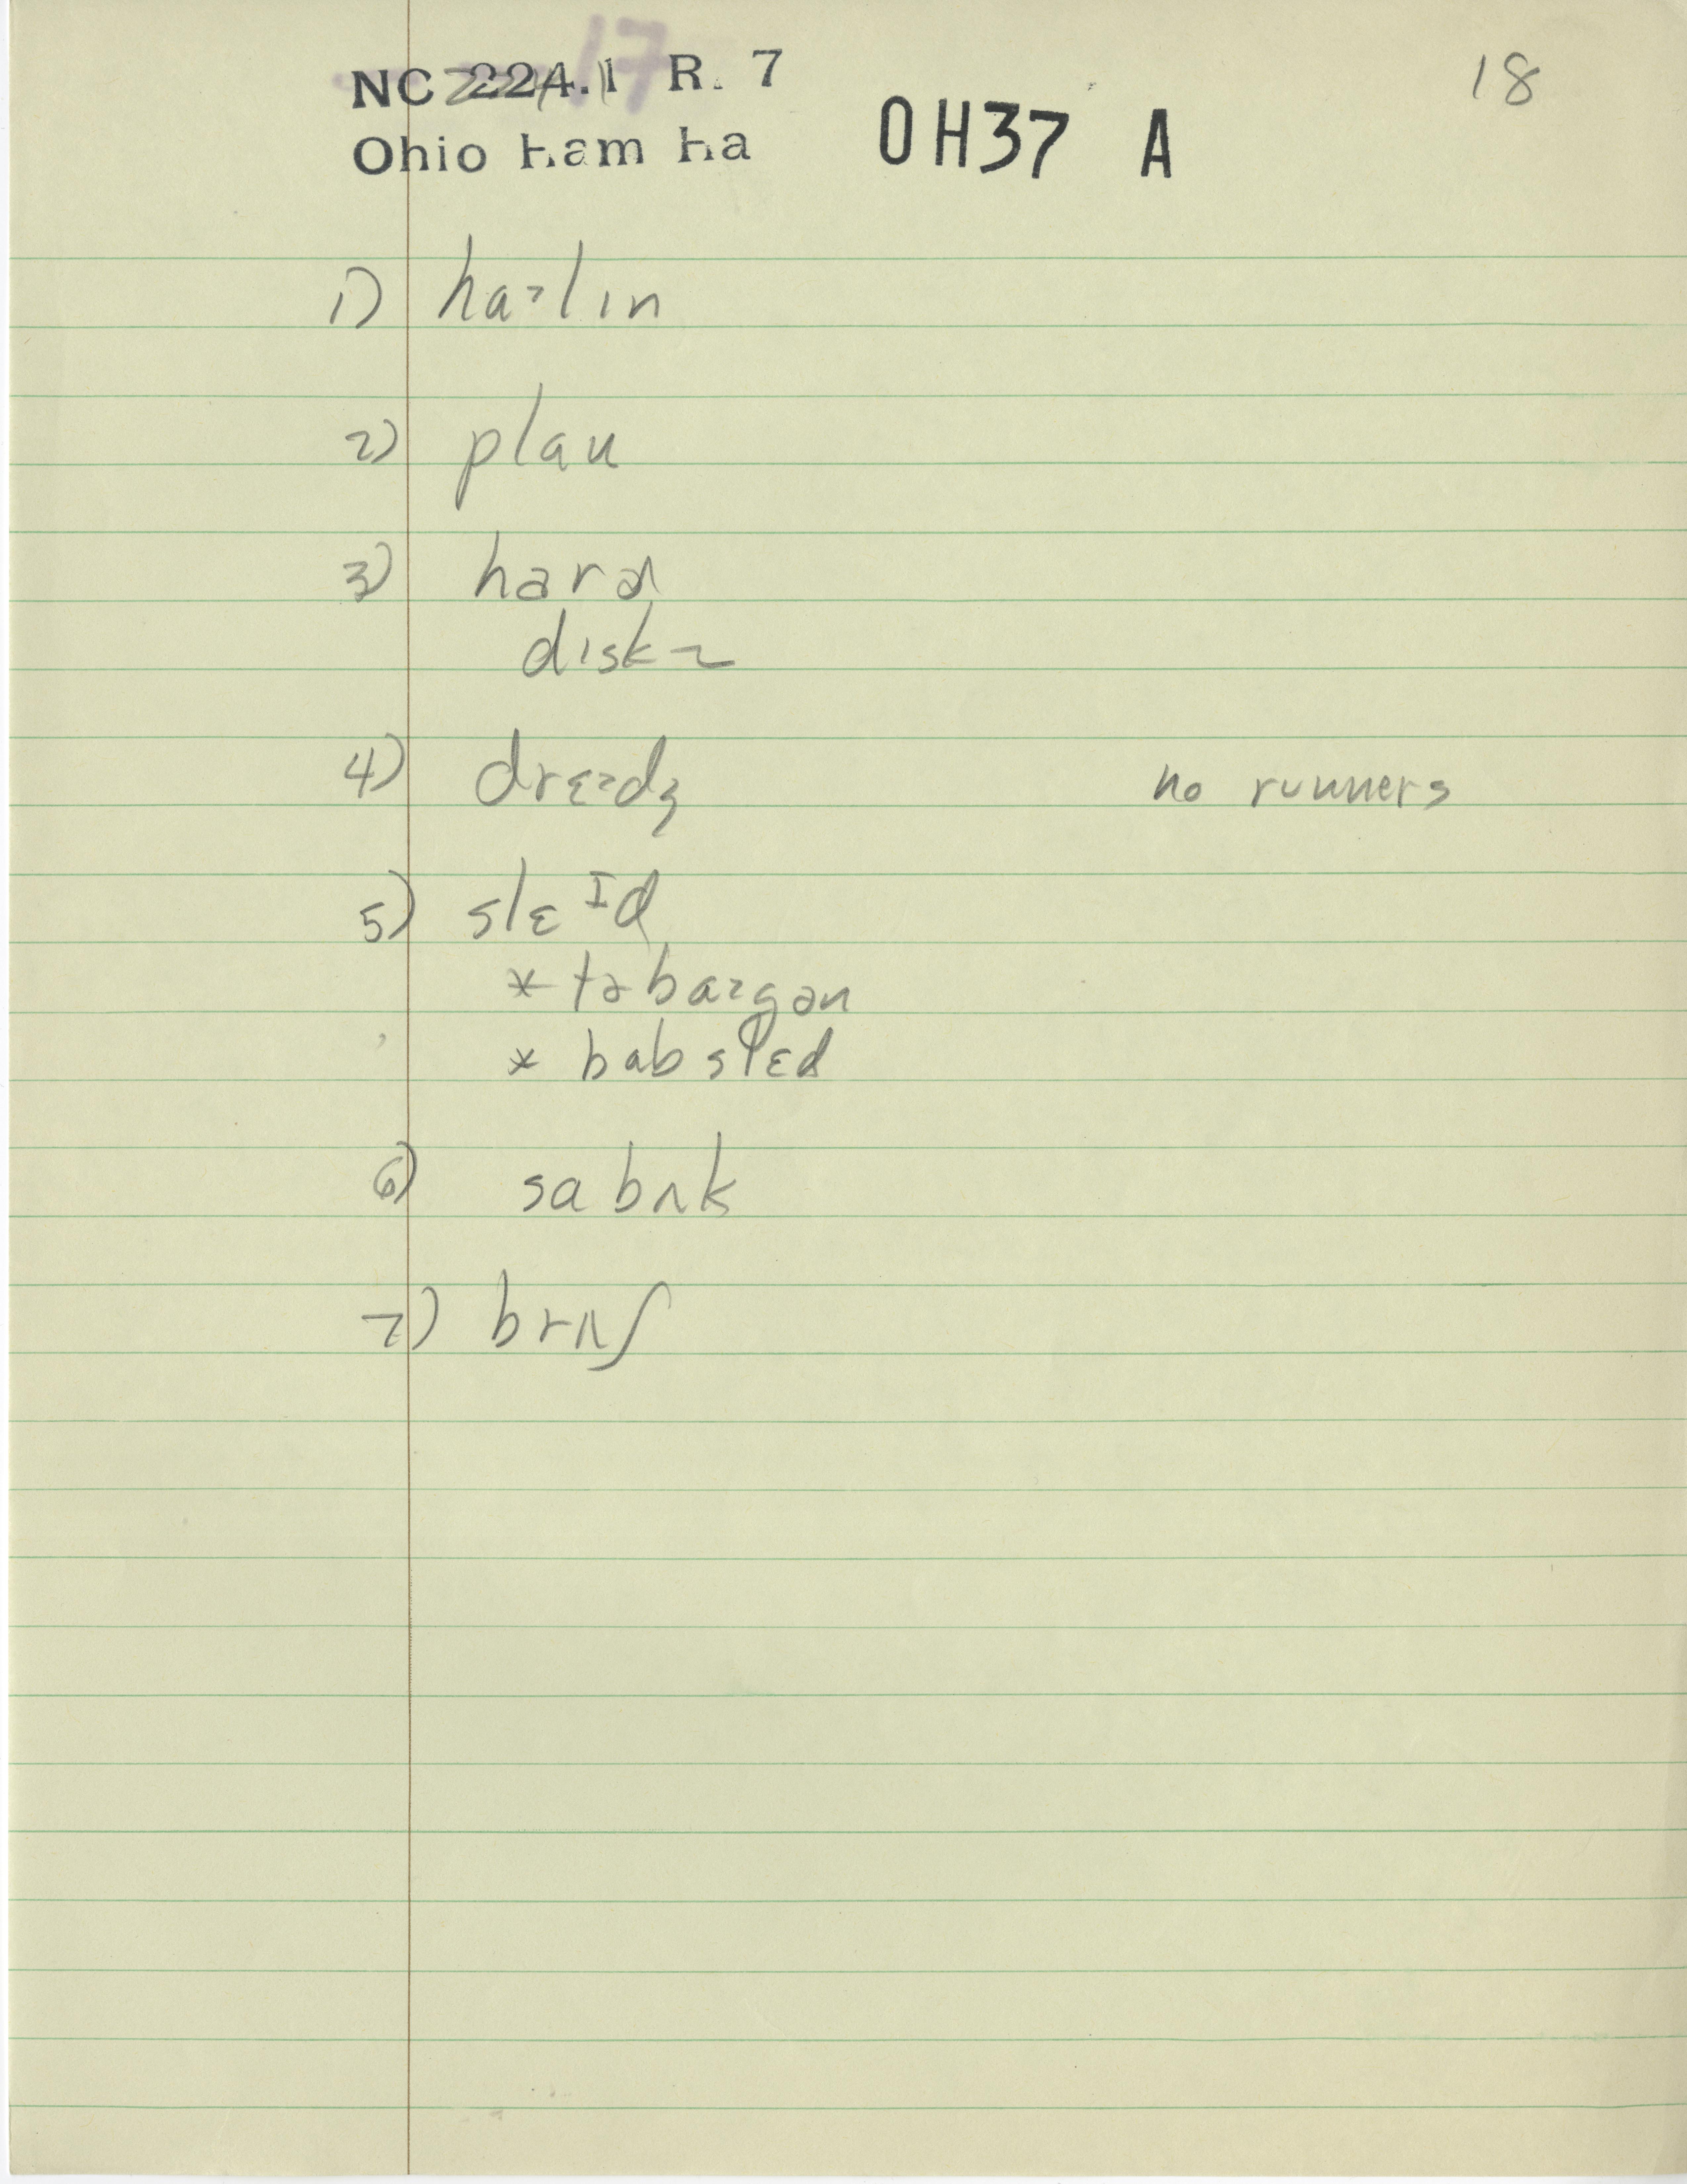 NC 224.1 R. 7 18
Ohio Ham Ha OH37 A
1) haᶻlɪn
2) plau
3) hara
diskz
4) drɛᶻdʒ no runners
5) slɛᴵd
* təbaᶻgən
* babslɛd
6) sabʌk
7) brʌʃ